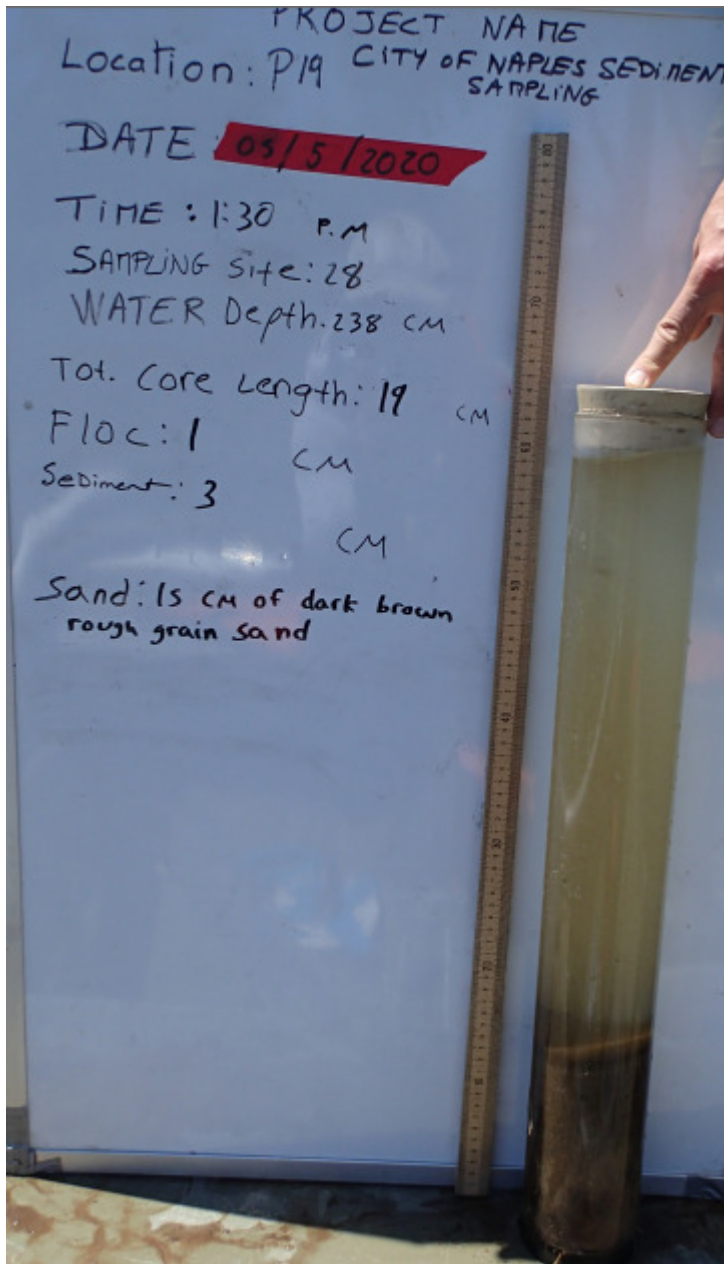 PROJECT NAME
Location: P19 CITY OF NAPLES SEDIMENT
SAMPLING
DATE: 05/5/2020
TIME: 1:30 P.M
SAMPLING Site: 28
WATER Depth. 238 CM
Tot. Core Length: 19 CM
Floc: 1 CM
Sediment: 3
CM
Sand: 15 CM of dark brown
rough grain sand
80
70
60
50
40
30
20
10